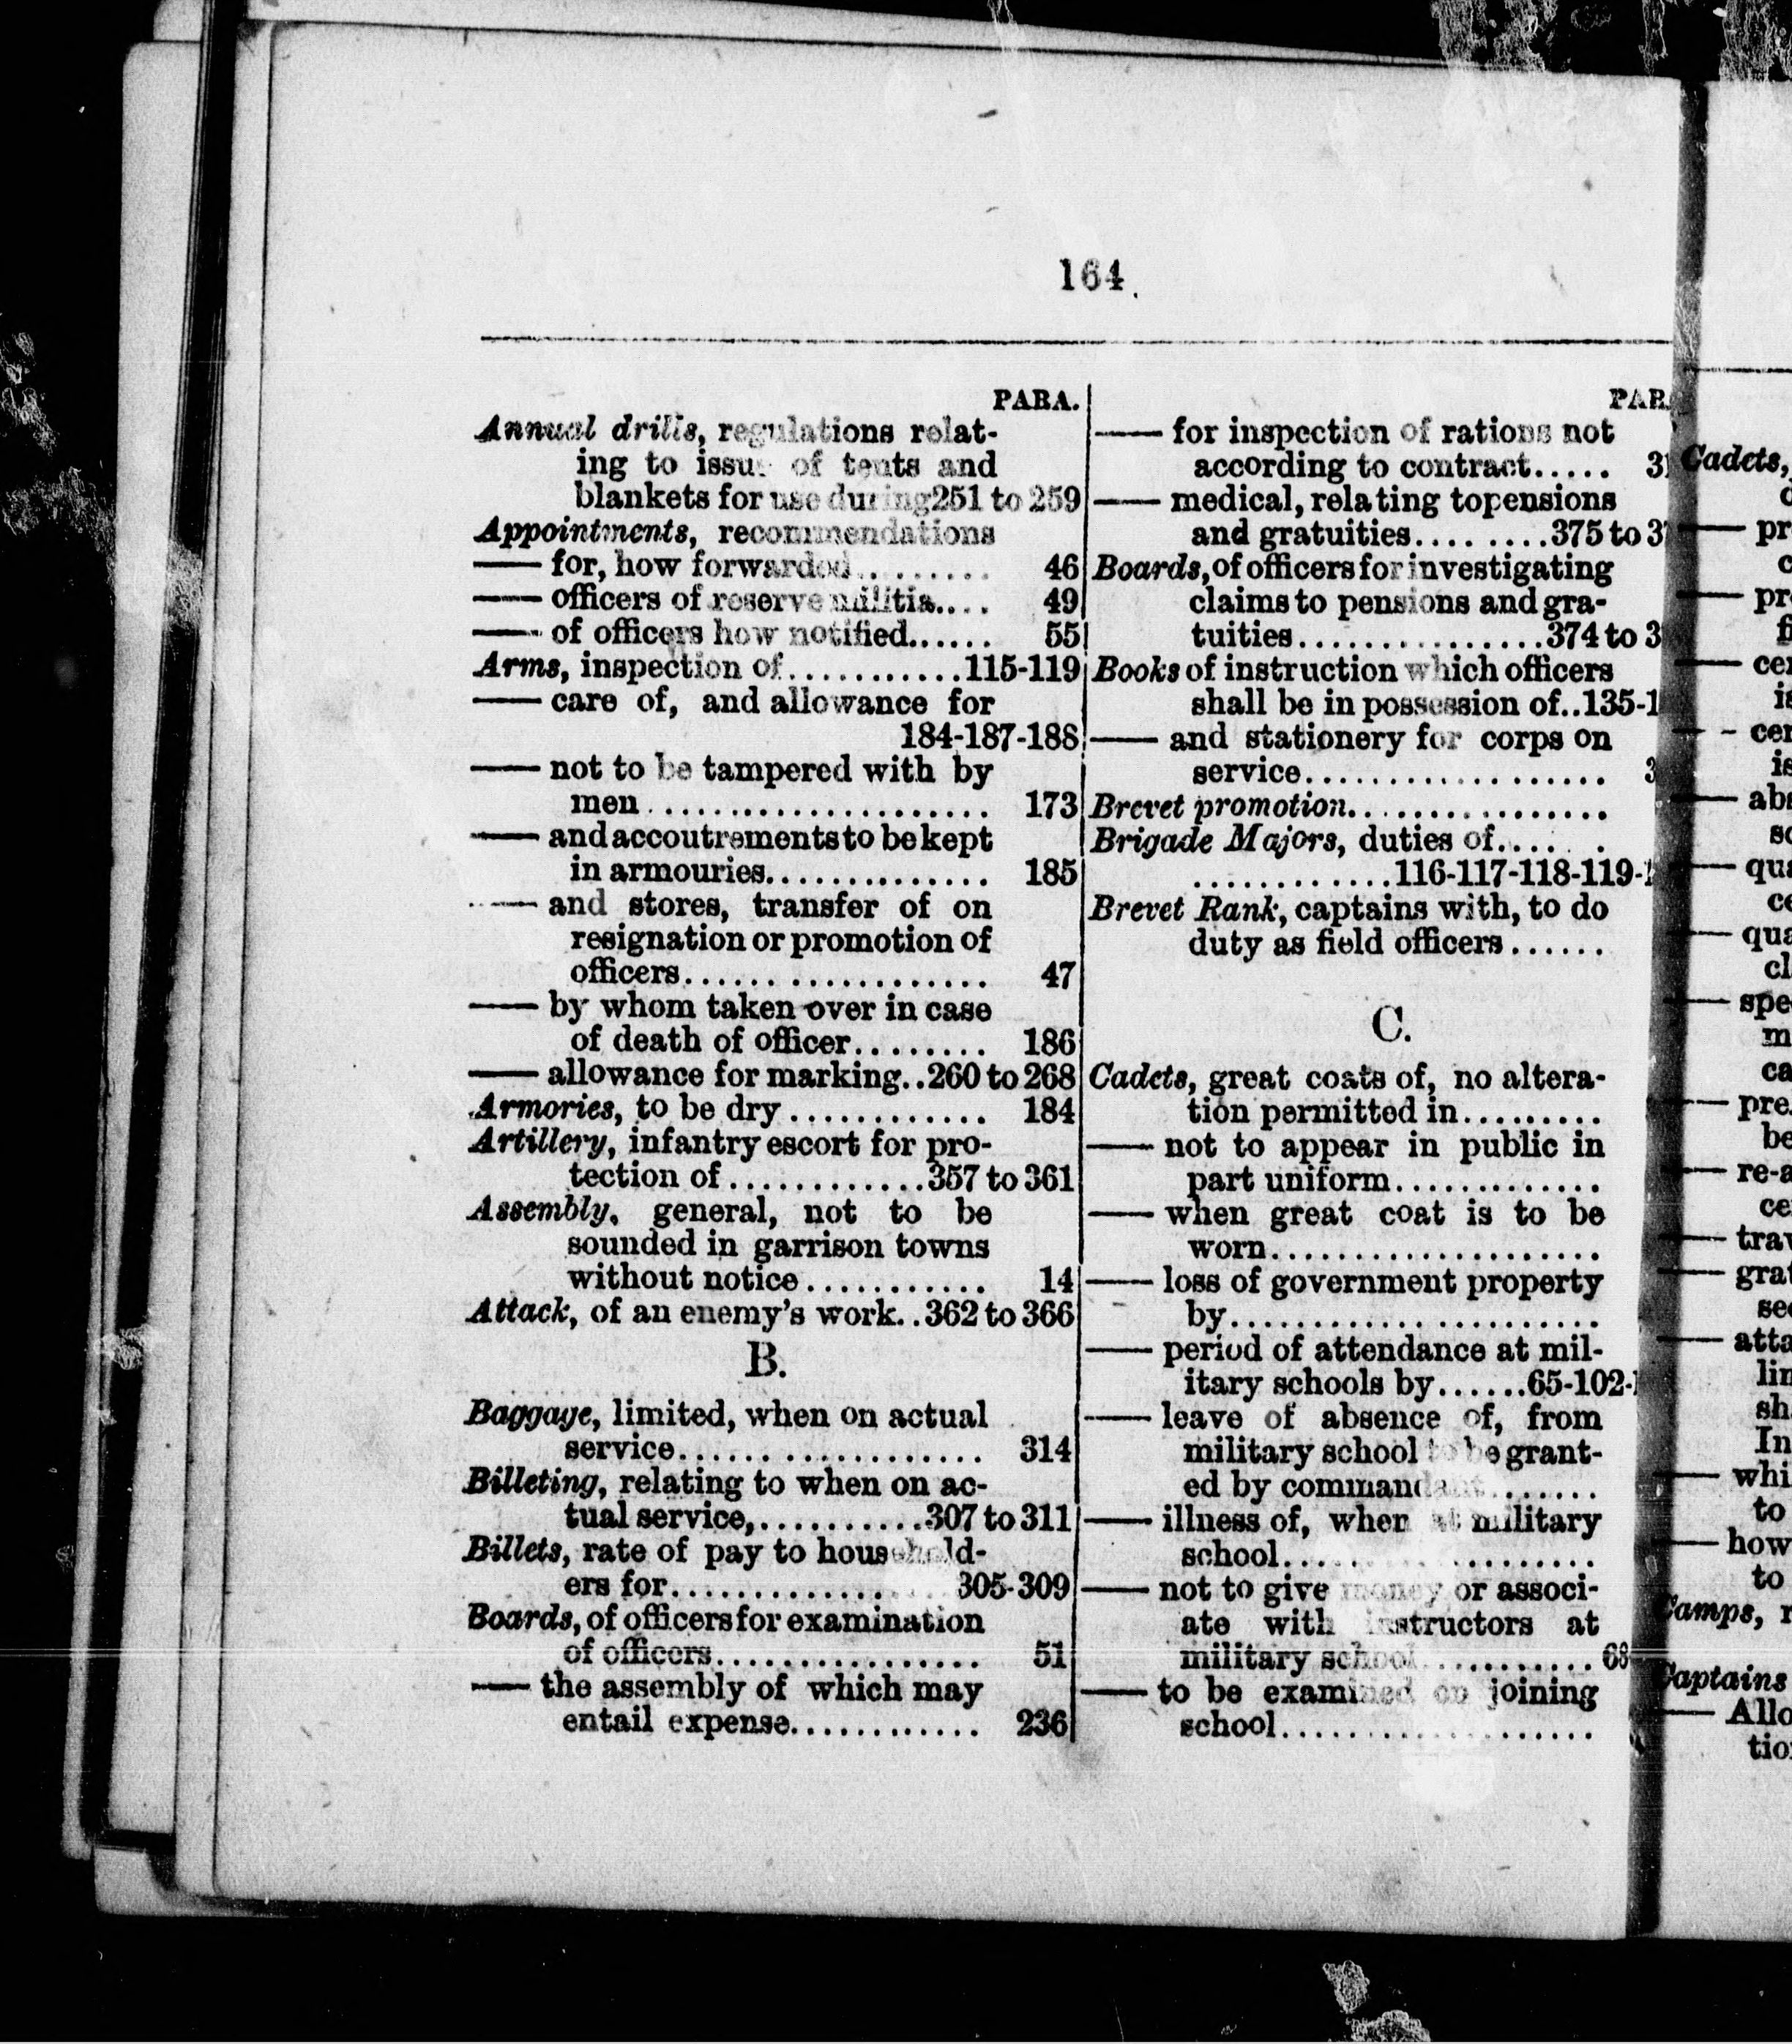 164
PARA.
Annual drills, regulations relat-
ing to issue of tents and
blankets for use during 251 to 259
Appointments, recommendations
—— for, how forwarded......... 46
—— officers of reserve militia.... 49
—— of officers how notified...... 55
Arms, inspection of............115-119
—— care of, and allowance for
184-187-188
—— not to be tampered with by
men..................... 173
—— and accoutrements to be kept
in armouries.............. 185
—— and stores, transfer of on
resignation or promotion of
officers................... 47
—— by whom taken over in case
of death of officer......... 186
—— allowance for marking..260 to 268
Armories, to be dry............. 184
Artillery, infantry escort for pro-
tection of.............357 to 361
Assembly, general, not to be
sounded in garrison towns
without notice............ 14
Attack, of an enemy's work..362 to 366
B.
Baggage, limited, when on actual
service................... 314
Billeting, relating to when on ac-
tual service,...........307 to 311
Billets, rate of pay to household-
ers for................305-309
Boards, of officers for examination
of officers................. 51
—— the assembly of which may
entail expense............ 236
PAR
—— for inspection of rations not
according to contract..... 3
—— medical, relating to pensions
and gratuities.........375 to 3
Boards, of officers for investigating
claims to pensions and gra-
tuities................374 to 3
Books of instruction which officers
shall be in possession of..135-1
—— and stationery for corps on
service................... 3
Brevet promotion................
Brigade Majors, duties of.......
.............116-117-118-119-1
Brevet Rank, captains with, to do
duty as field officers......
C.
Cadets, great coats of, no altera-
tion permitted in.........
—— not to appear in public in
part uniform.............
—— when great coat is to be
worn.....................
—— loss of government property
by.......................
—— period of attendance at mil-
itary schools by......65-102-
—— leave of absence of, from
military school to be grant-
ed by commandant.......
—— illness of, when at military
school....................
—— not to give money or associ-
ate with instructors at
military school...........68
—— to be examined on joining
school....................
Cadets,
—— pr
—— pr
—— cer
is
—— cer
is
—— abs
—— qua
ce
—— qua
cl
—— spe
m
ca
—— pre
be
—— re-a
ce
—— trav
—— grat
sec
—— atta
lin
sh
In
—— whi
to
—— how
to
Camps, r
Captains
—— Allo
tio